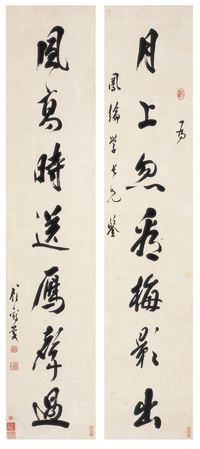 為
月上忽看梅影出
鳳綸學長兄鑒
風高時送鴈聲過